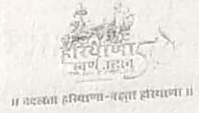 हरियाणा
स्वर्ण जयन्ती
॥ बदलता हरियाणा-बढ़ता हरियाणा ॥